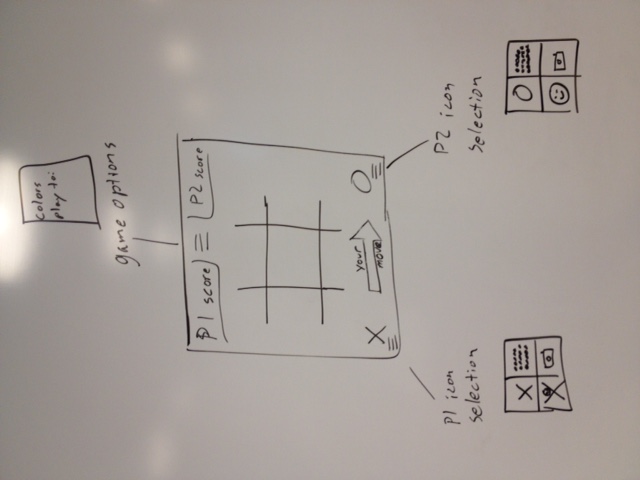 colors
play to:
game options
P1 score
P2 score
X
your
move
O
P1 icon
selection
P2 icon
selection
X
O